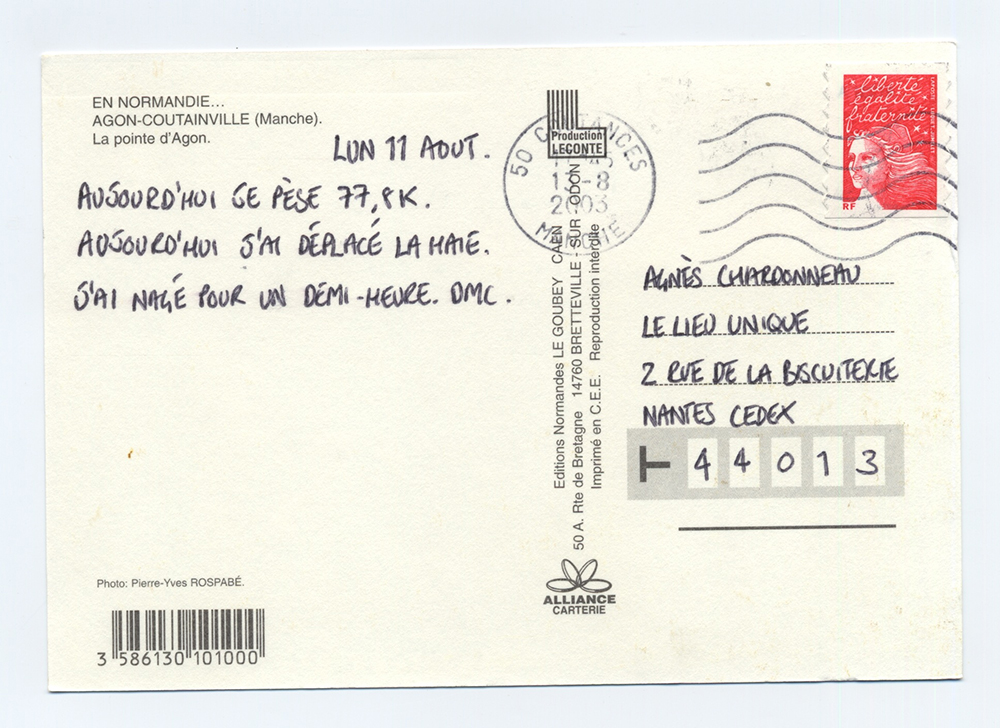 EN NORMANDIE...
AGON-COUTAINVILLE (Manche).
La pointe d'Agon.
LUN 11 AOUT.
AUJOURD'HUI JE PÈSE 77,8K.
AUJOURD'HUI J'AI DÉPLACÉ LA HAIE.
J'AI NAGÉ POUR UN DEMI-HEURE. DMC.
Photo: Pierre-Yves ROSPABÉ.
3 586130 101000
Production
LECONTE
50 COUTANCES
-8
2003
MANCHE
Editions Normandes LE GOUBEY CAEN
50 A. Rte de Bretagne 14760 BRETTEVILLE - SUR - ODON
Imprimé en C.E.E. Reproduction interdite
ALLIANCE
CARTERIE
liberté
égalité
fraternité
RF
AGNÈS CHARDONNEAU
LE LIEU UNIQUE
2 RUE DE LA BISCUITERIE
NANTES CEDEX
44013